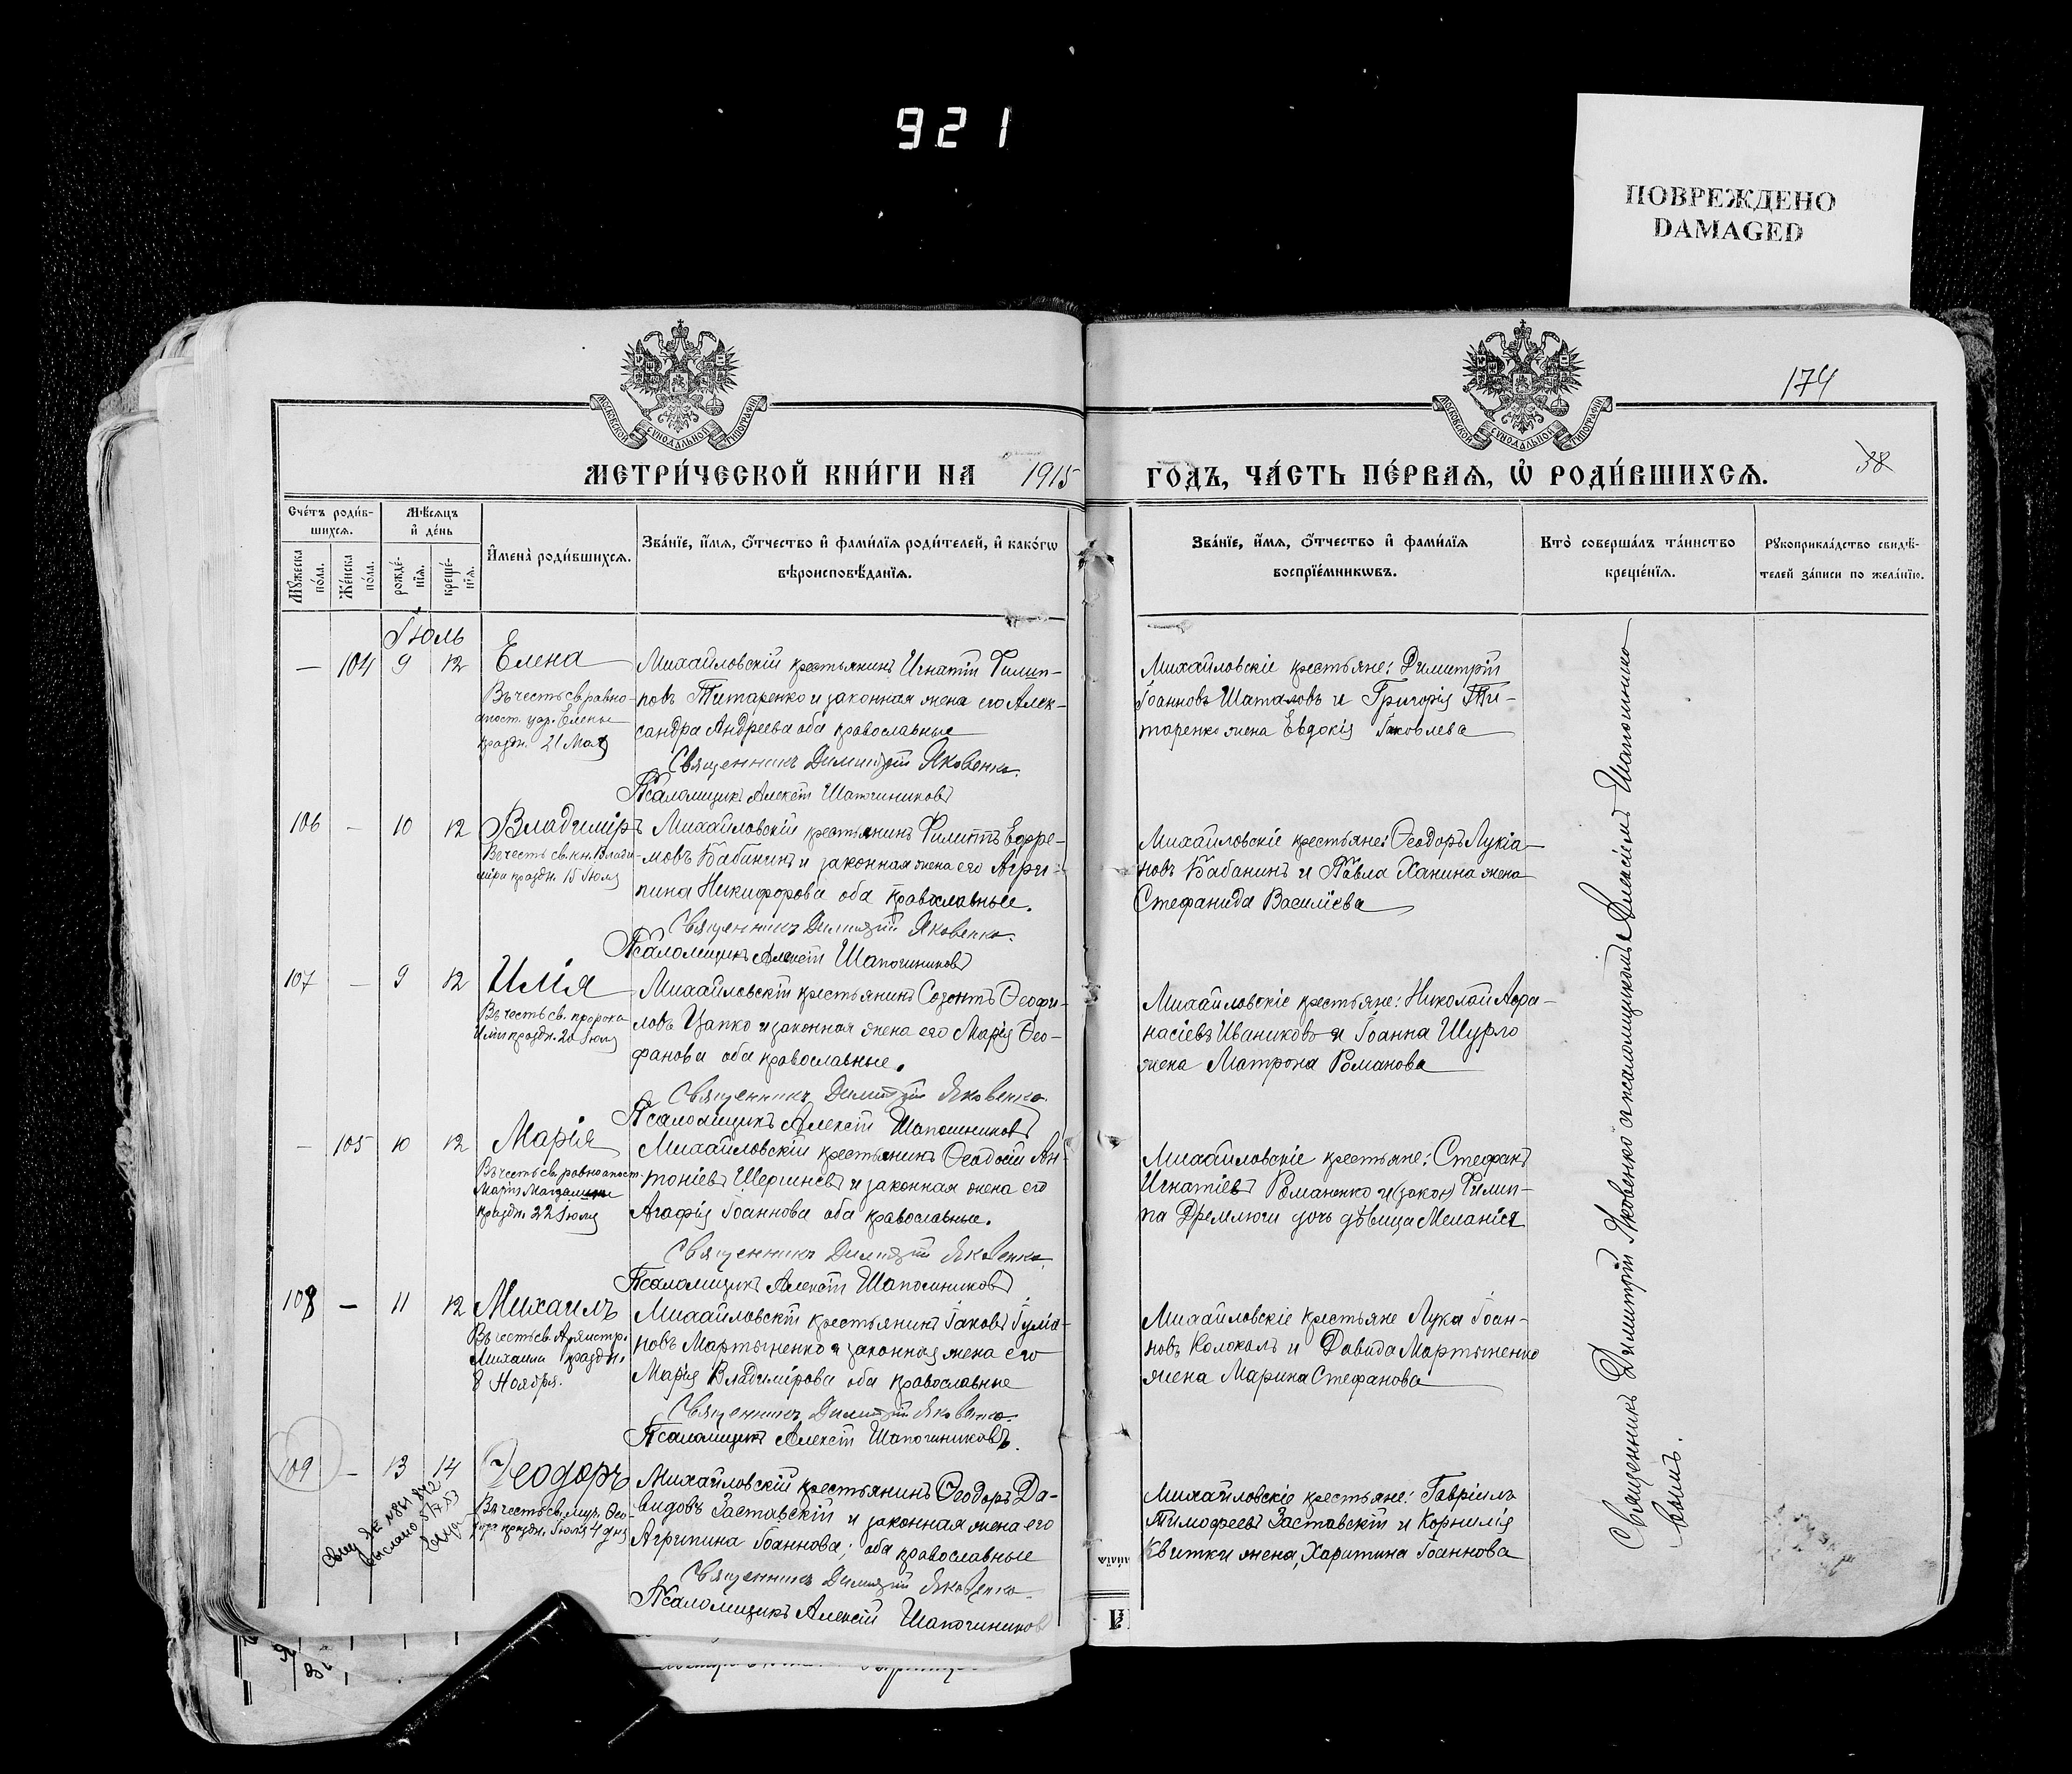 921
ПОВРЕЖДЕНО
DAMAGED
174
38
МОСКОВСКОЙ СѴНОДАЛЬНОЙ ТИПОГРАФІИ
МОСКОВСКОЙ СѴНОДАЛЬНОЙ ТИПОГРАФІИ
МЕТРИ́ЧЕСКОЙ КНИ́ГИ НА 1915 ГОДЪ, ЧА́СТЬ ПЕ́РВАѦ, Ѡ҆ РОДИ́ВШИХСѦ.
Сче́тъ роди́в-
шихсѧ.
Мꙋ́жеска по́ла.
Же́нска по́ла.
Мѣ́сѧцъ
и҆ де́нь
рожде́-
нїѧ.
креще́-
нїѧ.
И҆мена̀ роди́вшихсѧ.
Зва́нїе, и҆́мѧ, ѻ҆́тчество и҆ фами́лїѧ роди́телей, и҆ како́гѡ
вѣроисповѣ́данїѧ.
Зва́нїе, и҆́мѧ, ѻ҆́тчество и҆ фами́лїѧ
воспрїе́мникѡвъ.
Кто̀ соверша́лъ та́инство
креще́нїѧ.
Рꙋкоприкла́дство свидѣ́-
телей за́писи по жела́нїю.
Іюль
— 104 9 12 Елена
Въ честь св. равно-
апост. цар. Елены
праздн. 21 Мая
Михайловскій крестьянинъ Игнатій Филип-
повъ Титаренко и законная жена его Алек-
сандра Андреева оба православные
Священникъ Димитрій Яковенко.
Псаломщикъ Алексѣй Шапошниковъ
Михайловскіе крестьяне: Димитрій
Іоанновъ Шаталовъ и Григорія Ти-
таренко жена Евдокія Іаковлева
106 — 10 12 Владиміръ
Въ честь св. кн. Влади-
міра праздн. 15 Іюля
Михайловскій крестьянинъ Филиппъ Ефре-
мовъ Бабанинъ и законная жена его Агри-
пина Никифорова оба православные.
Священникъ Димитрій Яковенко.
Псаломщикъ Алексѣй Шапошниковъ
Михайловскіе крестьяне: Ѳеодоръ Лукіа-
новъ Бабанинъ и Павла Ханина жена
Стефанида Василіева
107 — 9 12 Илія
Въ честь св. пророка
Иліи праздн. 20 Іюля
Михайловскій крестьянинъ Созонтъ Ѳеофи-
ловъ Цапко и законная жена его Марія Ѳео-
фанова оба православные.
Священникъ Димитрій Яковенко.
Псаломщикъ Алексѣй Шапошниковъ
Михайловскіе крестьяне: Николай Афа-
насіевъ Иваниковъ и Іоанна Шурло
жена Матрона Романова
— 105 10 12 Марія
Въ честь св. равноапост.
Маріи Магдалины
праздн. 22 Іюля
Михайловскій крестьянинъ Ѳеодосій Ан-
тоніевъ Шершневъ и законная жена его
Агафія Іоаннова оба православные.
Священникъ Димитрій Яковенко.
Псаломщикъ Алексѣй Шапошниковъ
Михайловскіе крестьяне: Стефанъ
Игнатіевъ Романенко и (закон) Филип-
па Дремлюги дочь дѣвица Меланія
108 — 11 12 Михаилъ
Въ честь св. Архистр.
Михаила праздн.
8 Ноября.
Михайловскій крестьянинъ Іаковъ Іулiа-
новъ Мартыненко и законная жена его
Марія Владимірова оба православные
Священникъ Димитрій Яковенко.
Псаломщикъ Алексѣй Шапошниковъ.
Михайловскіе крестьяне Лука Іоан-
новъ Колокалъ и Давида Мартыненко
жена Марина Стефанова
109 — 13 14 Ѳеодоръ
Въ честь св. муч. Ѳео-
дора праздн. Іюля 4 дня
выслано
Михайловскій крестьянинъ Ѳеодоръ Да-
видовъ Заставскій и законная жена его
Агрипина Іоаннова; оба православные
Священникъ Димитрій Яковенко.
Псаломщикъ Алексѣй Шапошниковъ
Михайловскіе крестьяне: Гавріилъ
Тимофеевъ Заставскій и Корнилія
Квитки жена, Харитина Іоаннова
Священникъ Димитрій Яковенко съ псаломщикомъ Алексѣемъ Шапошнико-
вымъ.